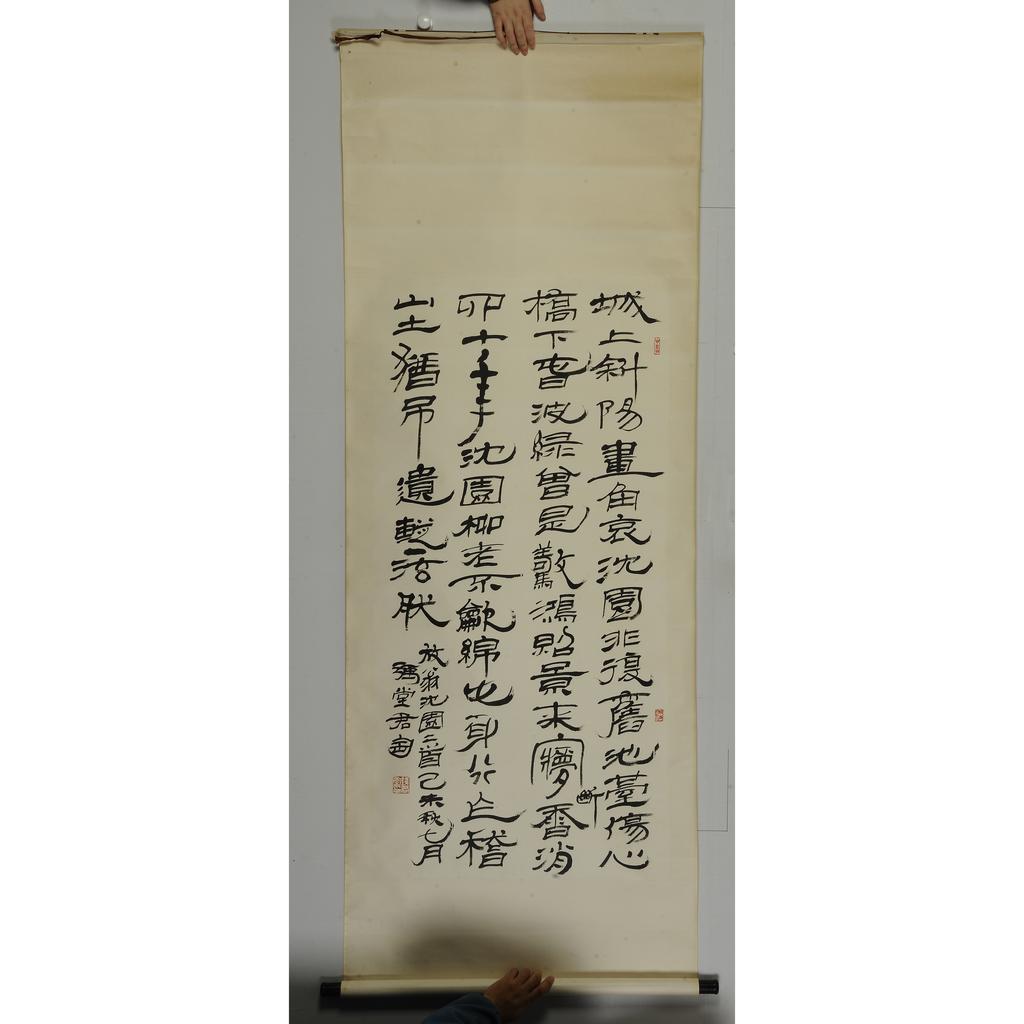 城上斜陽畫角哀沈園非復舊池臺傷心
橋下旾波綠曾是驚鴻照景來夢斷香消
四十年沈園柳老不龡綿此身行作稽
山土猶弔遺蹤一泫然
放翁沈園二首己未秋七月
豫堂君匋